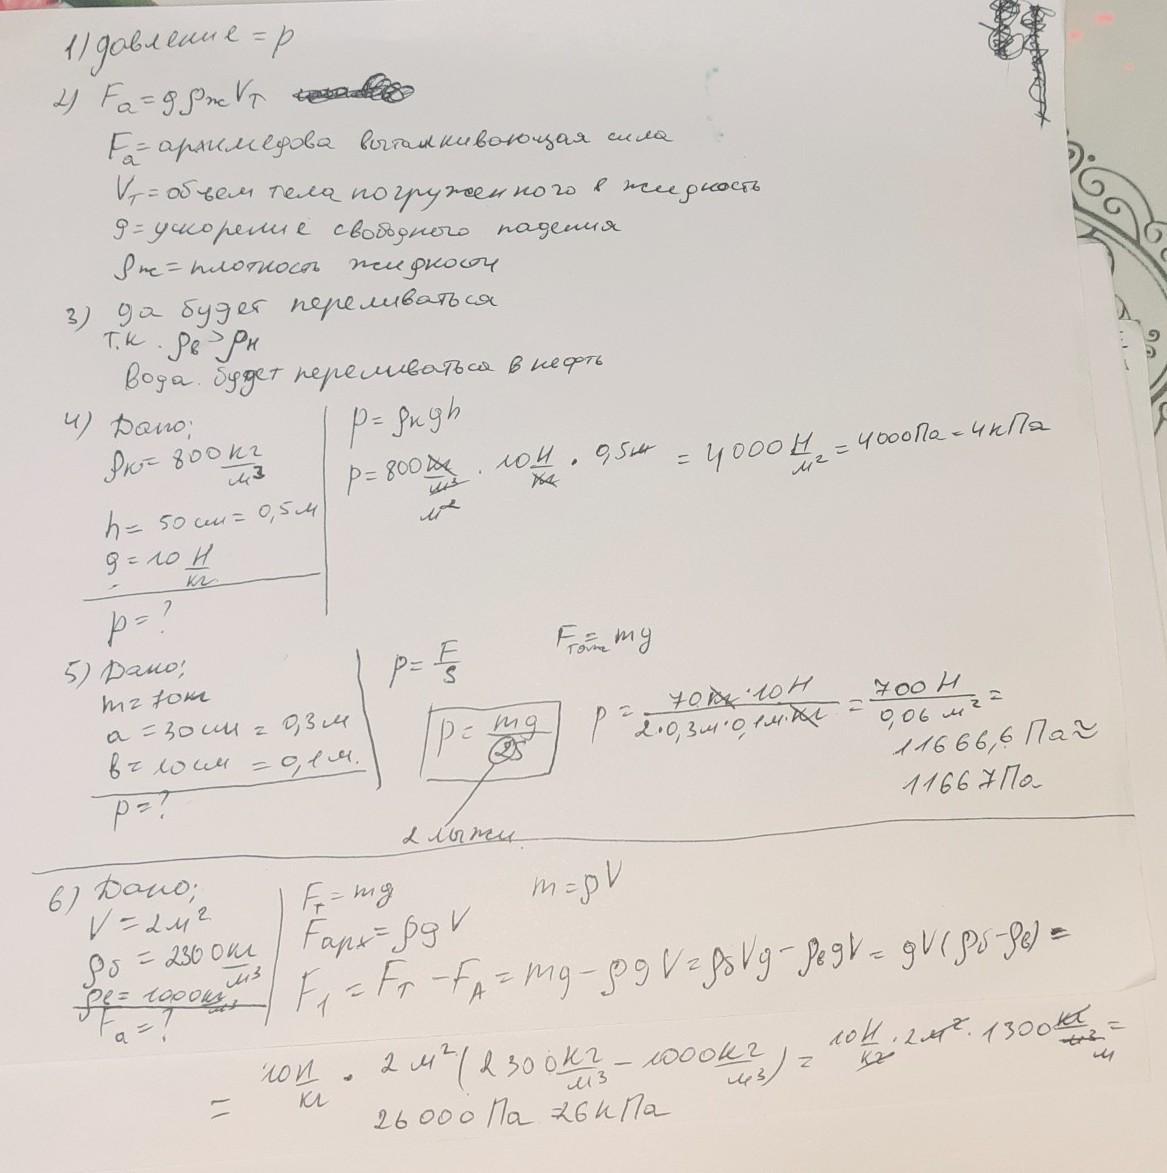 1) давление = p
2) Fa = gρжVт
Fa = архимедова выталкивающая сила
Vт = объем тела погруженного в жидкость
g = ускорение свободного падения
ρж = плотность жидкости
3) да будет переливаться
т.к. ρв > ρн
Вода. будет переливаться в нефть
4) Дано;
ρк = 800 кг/м³
h = 50 см = 0,5 м
g = 10 Н/кг
p = ?
p = ρкgh
p = 800 кг/м³ · 10 Н/кг · 0,5 м = 4000 Н/м² = 4000Па = 4кПа
м²
5) Дано;
m = 70кг
a = 30см = 0,3м
в = 10см = 0,1м.
p = ?
p = F/S
Fтяж = mg
p = mg/2S
2 лыжи.
p = 70кг·10Н/2·0,3м·0,1м·кг = 700Н/0,06 м² =
11666,6 Па ≈
11667Па
6) Дано;
V = 2м²
ρб = 2300кг/м³
ρв = 1000кг/м³
Fа = ?
Fт = mg
m = ρV
Fарх = ρgV
F₁ = Fт - FА = mg - ρgV = ρбVg - ρвgV = gV(ρб - ρв) =
= 10Н/кг · 2м²(2300кг/м³ - 1000кг/м³) = 10Н/кг · 2м² · 1300кг/м³ =
м
26000Па 26кПа